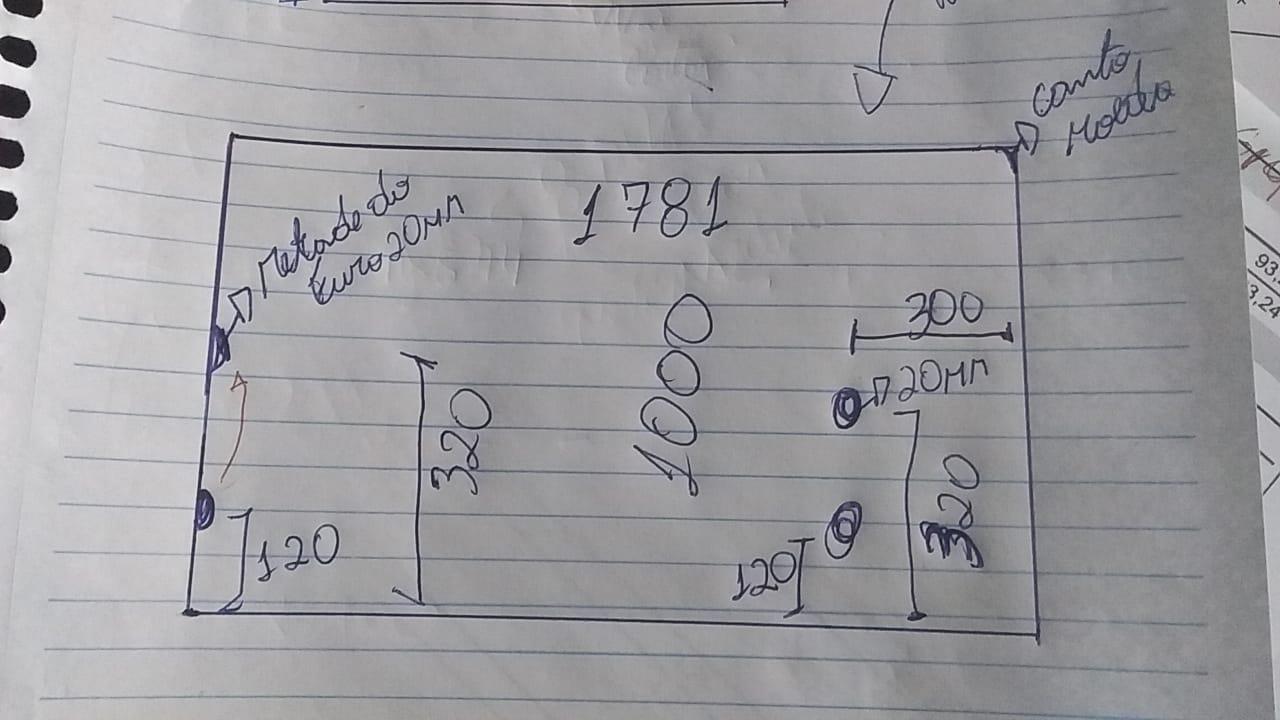 canto
Moeda
1781
Metade do
furo 20MM
300
1000
20MM
320
320
120
120
93,
3,24